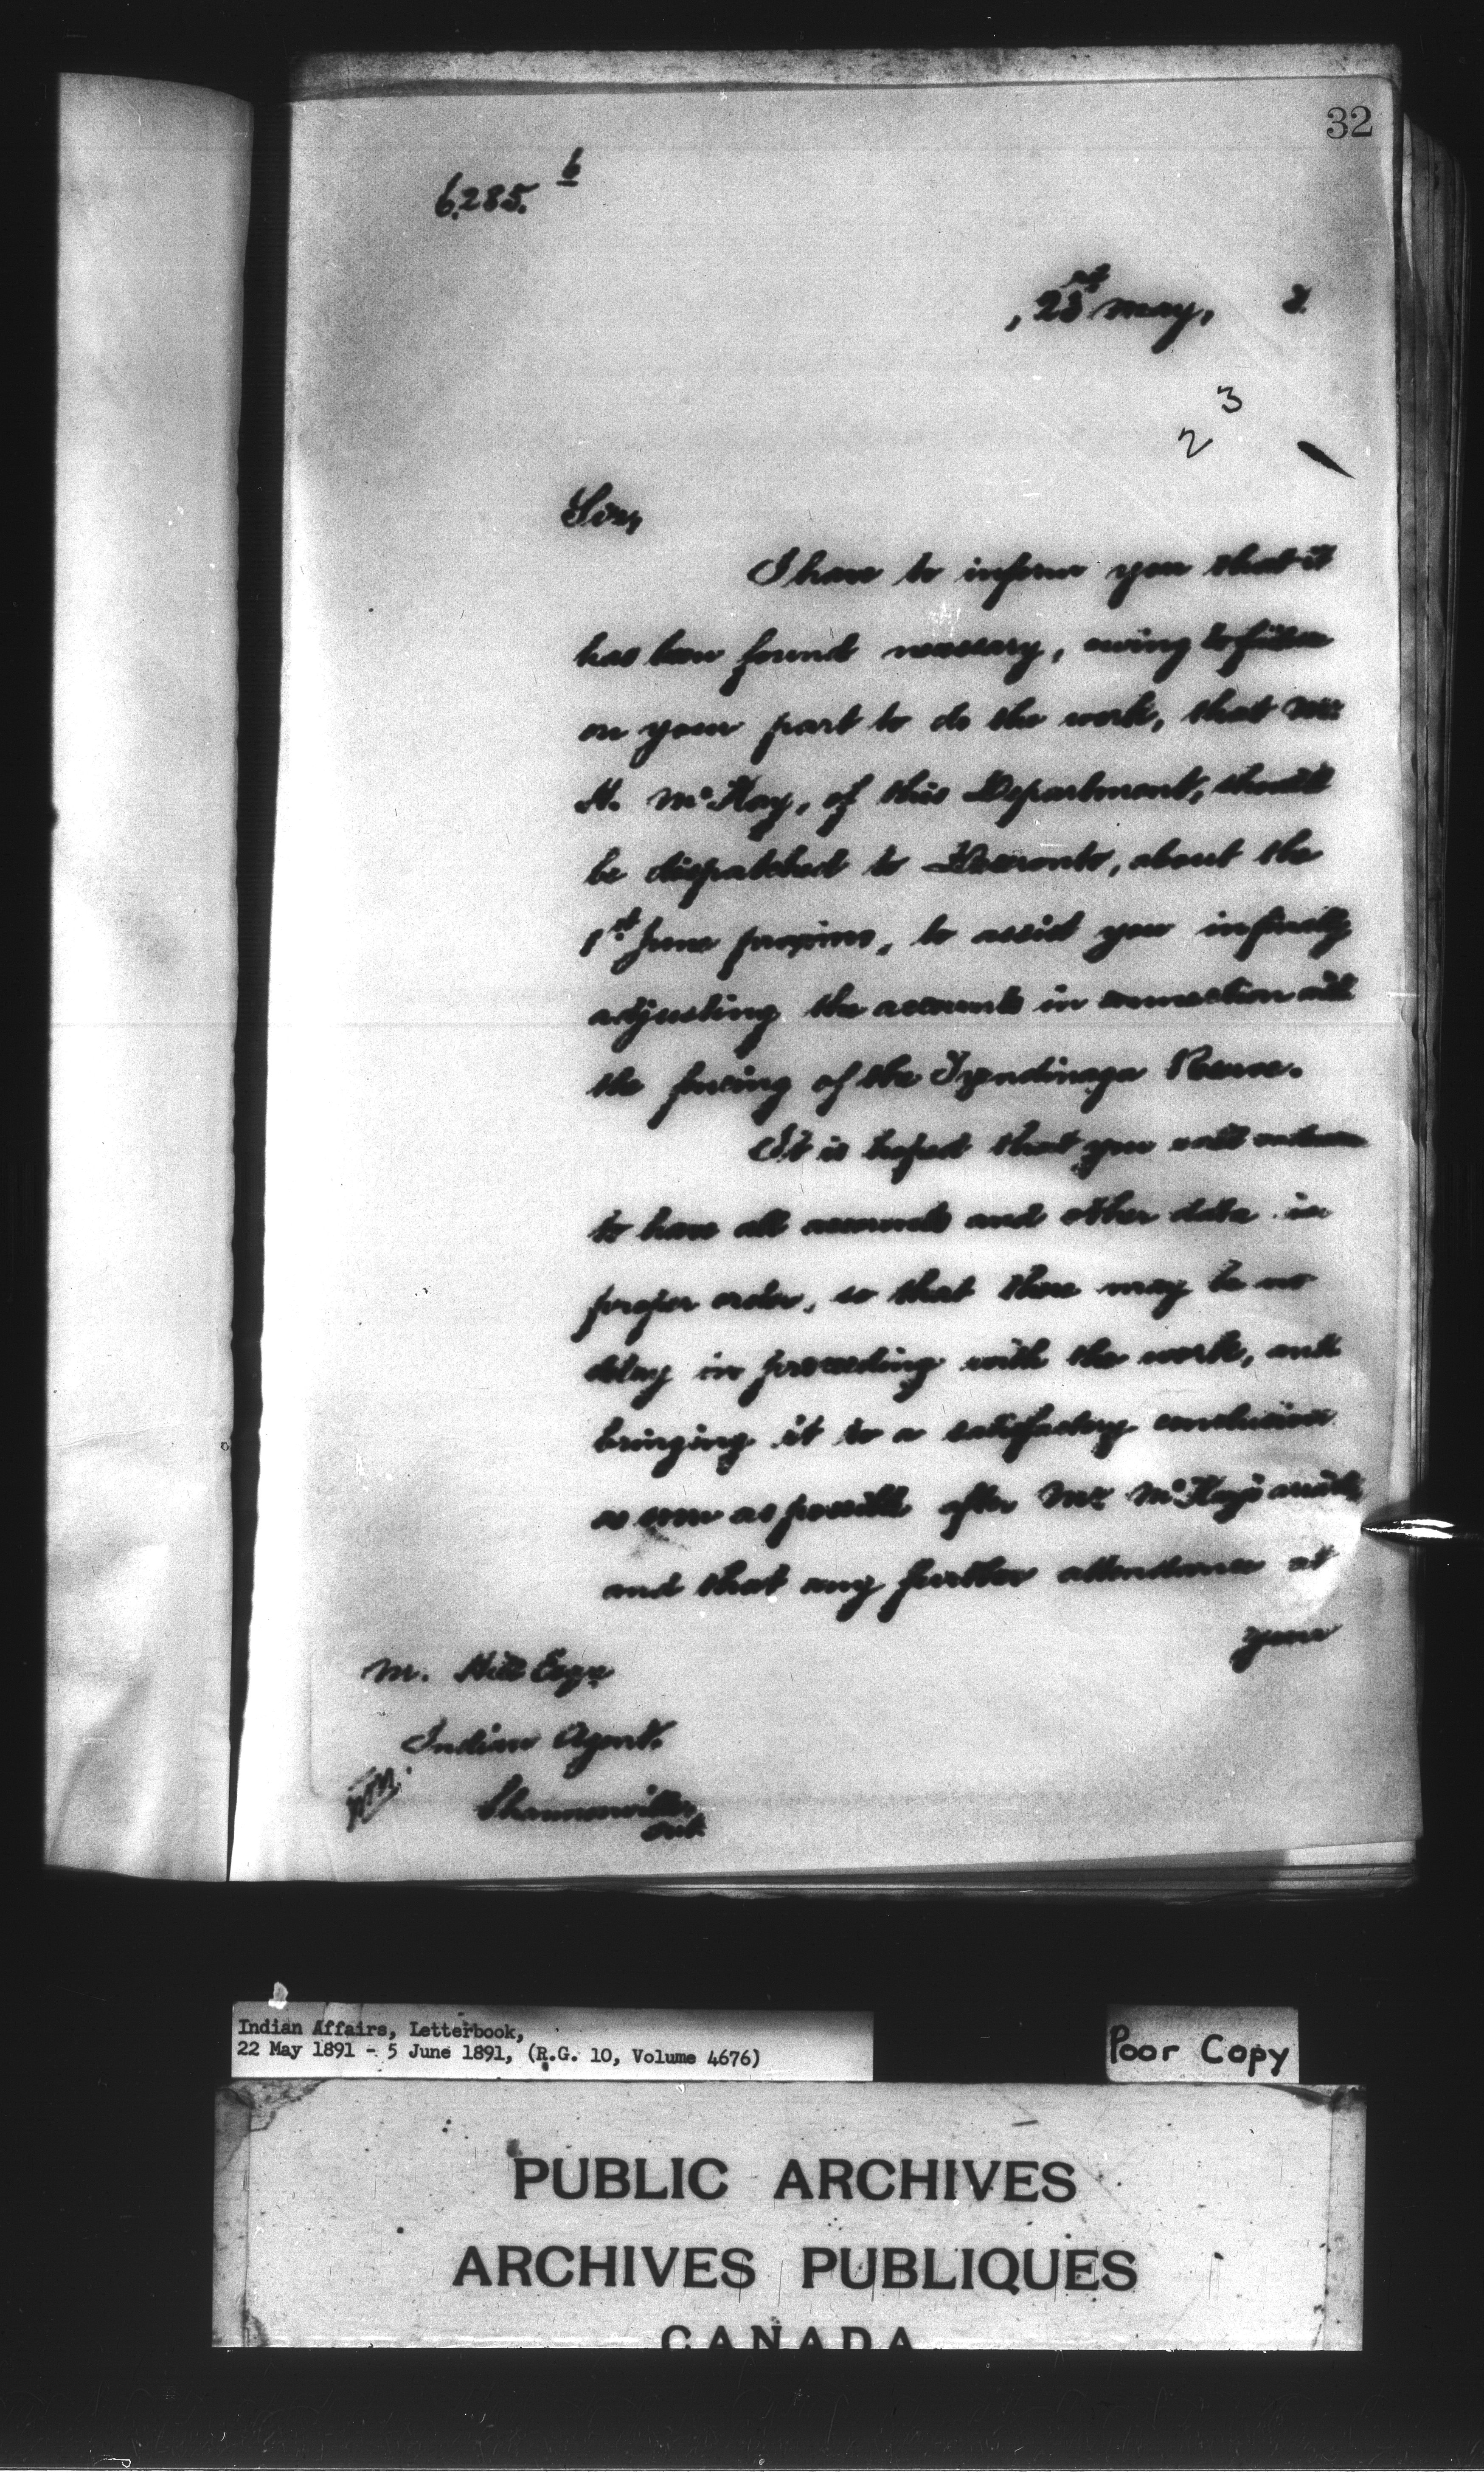 32
6.285. 6
, 23rd May, 1.
3
2
Sir,
I have to inform you that it
has been found necessary, owing to failure
on your part to do the work, that Mr
H. McKay, of this Department, should
be dispatched to Deseronto, about the
1st June proximo, to assist you in finally
adjusting the accounts in connection with
the fencing of the Tyendinaga Reserve.
It is hoped that you will
to have all accounts and other data in
proper order, so that there may be no
delay in proceeding with the work, and
bringing it to a satisfactory conclusion
as soon as possible after Mr McKay's
and that any further attendance at
your
M. Hill Esqre
Indian Agent.
Shannonville,
Ont.
Indian Affairs, Letterbook,
22 May 1891 - 5 June 1891, (R.G. 10, Volume 4676)
Poor Copy
PUBLIC ARCHIVES
ARCHIVES PUBLIQUES
CANADA